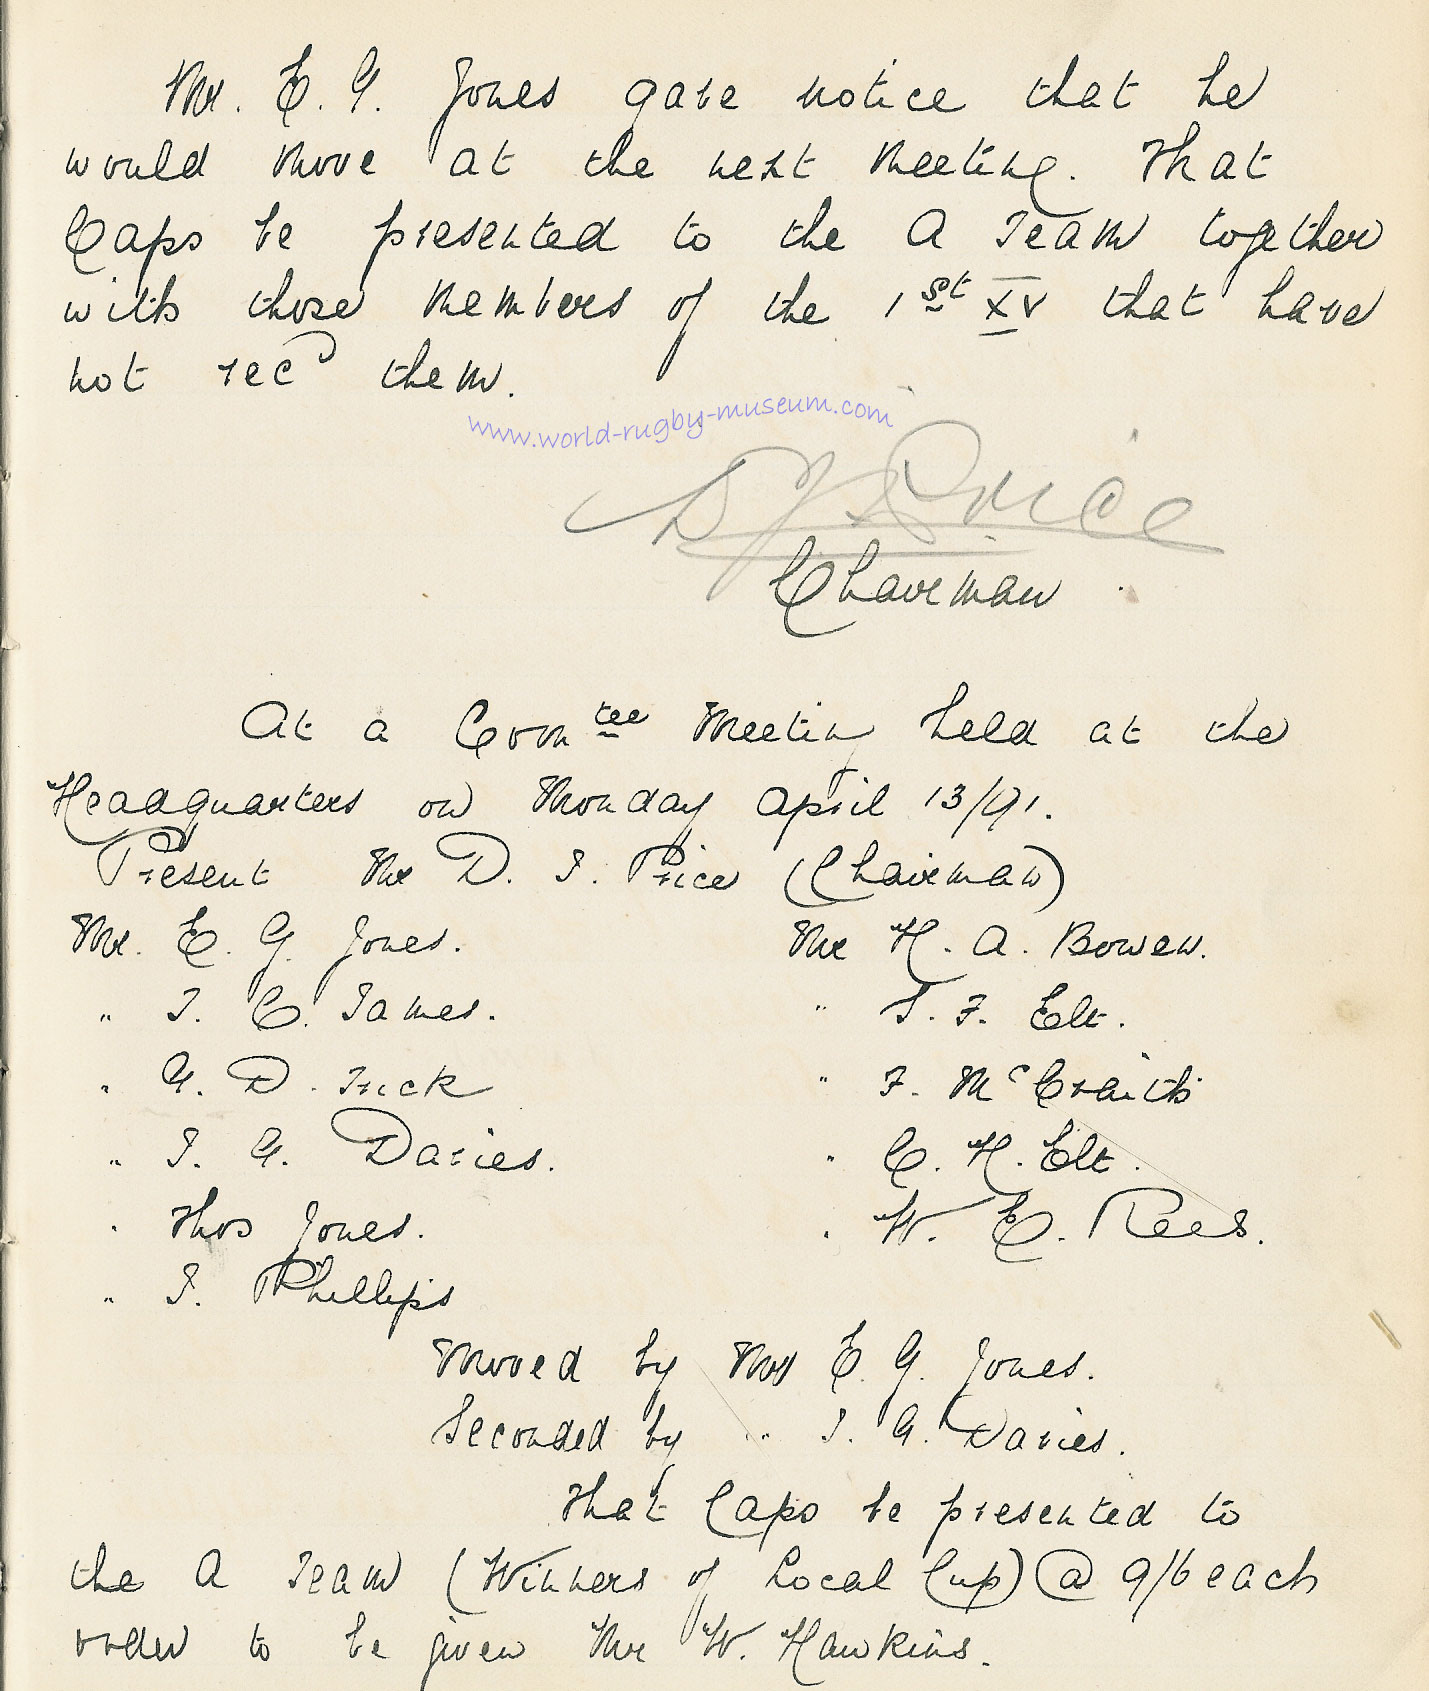 Mr. E. G. Jones gave notice that he
would move at the next Meeting. That
Caps be presented to the A Team together
with those members of the 1st XV that have
not recd them.
www.world-rugby-museum.com
D J Price
Chairman
At a Comtee Meeting held at the
Headquarters on Monday April 13/91.
Present Mr D. J. Price (Chairman)
Mr. E. G. Jones. Mr H. A. Bowen.
" T. C. James. " S. F. Elt.
" G. D. Trick " F. McCraith
" J. G. Davies. " C. H. Elt.
" Thos Jones. " W. E. Rees.
" J. Phillips
Moved by Mr E. G. Jones.
Seconded by " J. G. Davies.
That Caps be presented to
the A Team (Winners of Local Cup) @ 9/6 each
order to be given Mr W. Hawkins.